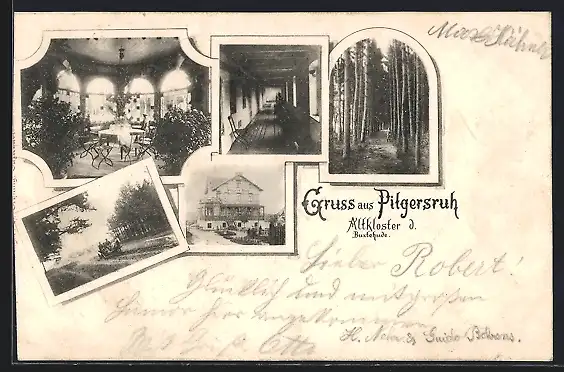 Max Kühne
Gruss aus Pilgersruh
Altkloster b.
Buxtehude.
Lieber Robert!
Glücklich und mit großem
Humor hier angekommen
Otto
H. Nein & Guido Behrens.